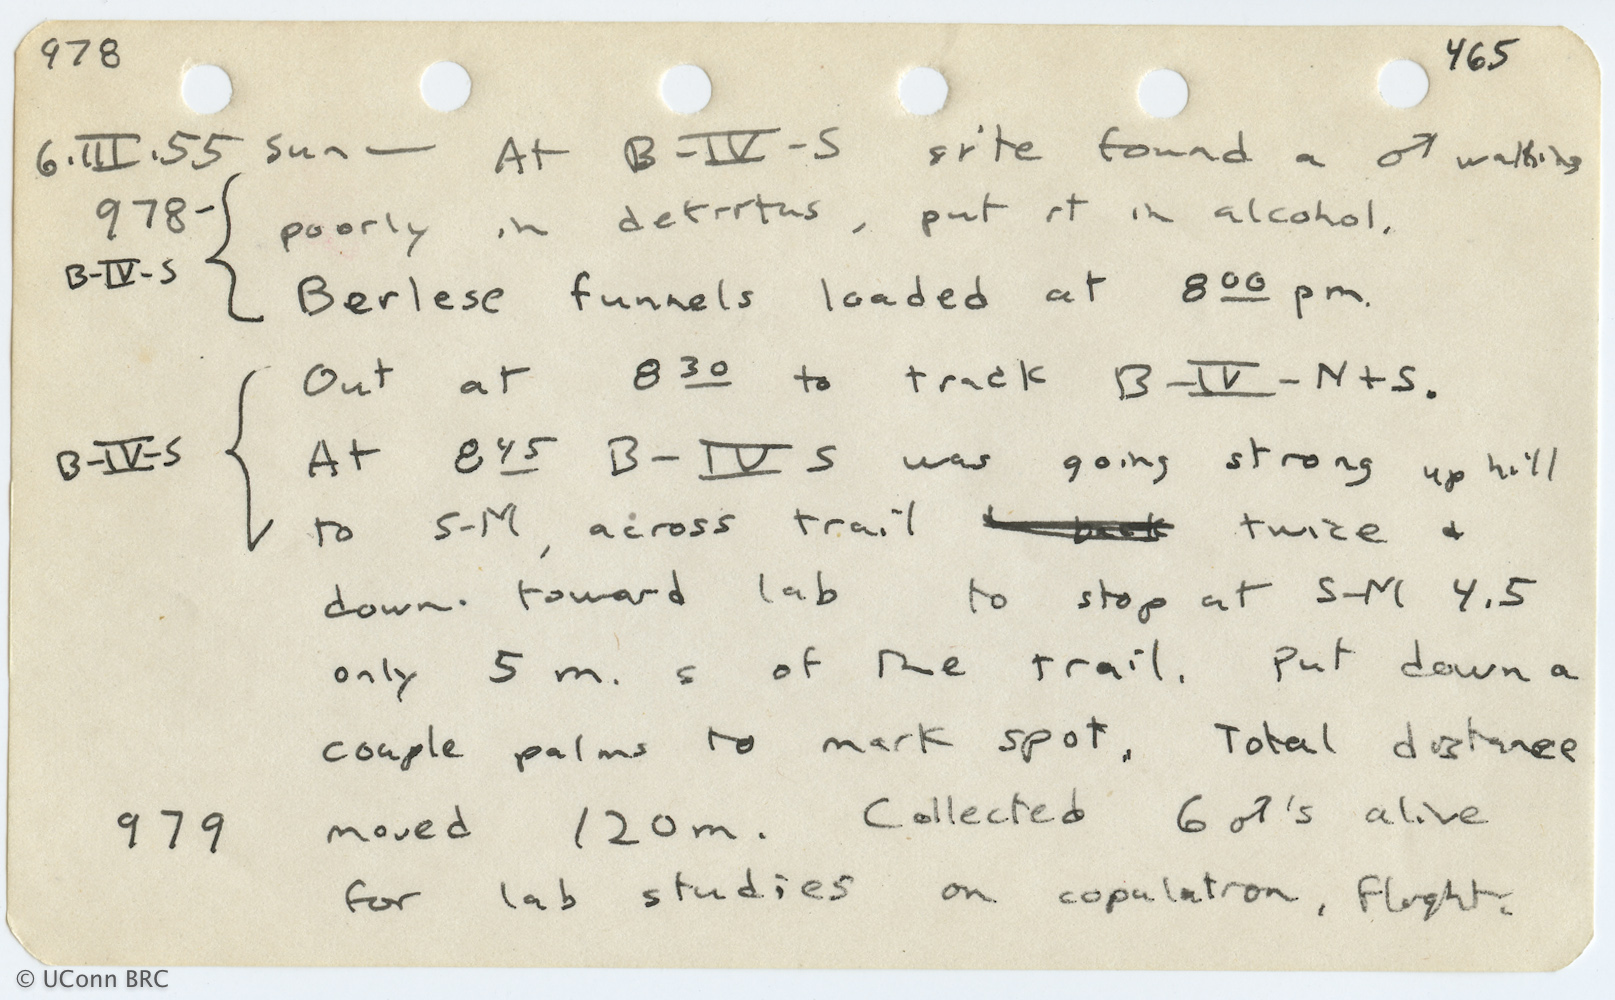 978 465
6.III.55 Sun — At B-IV-S site found a ♂ walking
978- poorly in detritus, put it in alcohol.
B-IV-S Berlese funnels loaded at 800 pm.
Out at 830 to track B-IV-N+S.
B-IV-S At 845 B-IV S was going strong up hill
to S-M, across trail twice &
down. toward lab to stop at S-M 4.5
only 5 m. s of the trail. Put down a
couple palms to mark spot. Total distance
979 moved 120m. Collected 6 ♂'s alive
for lab studies on copulation, flight.
© UConn BRC